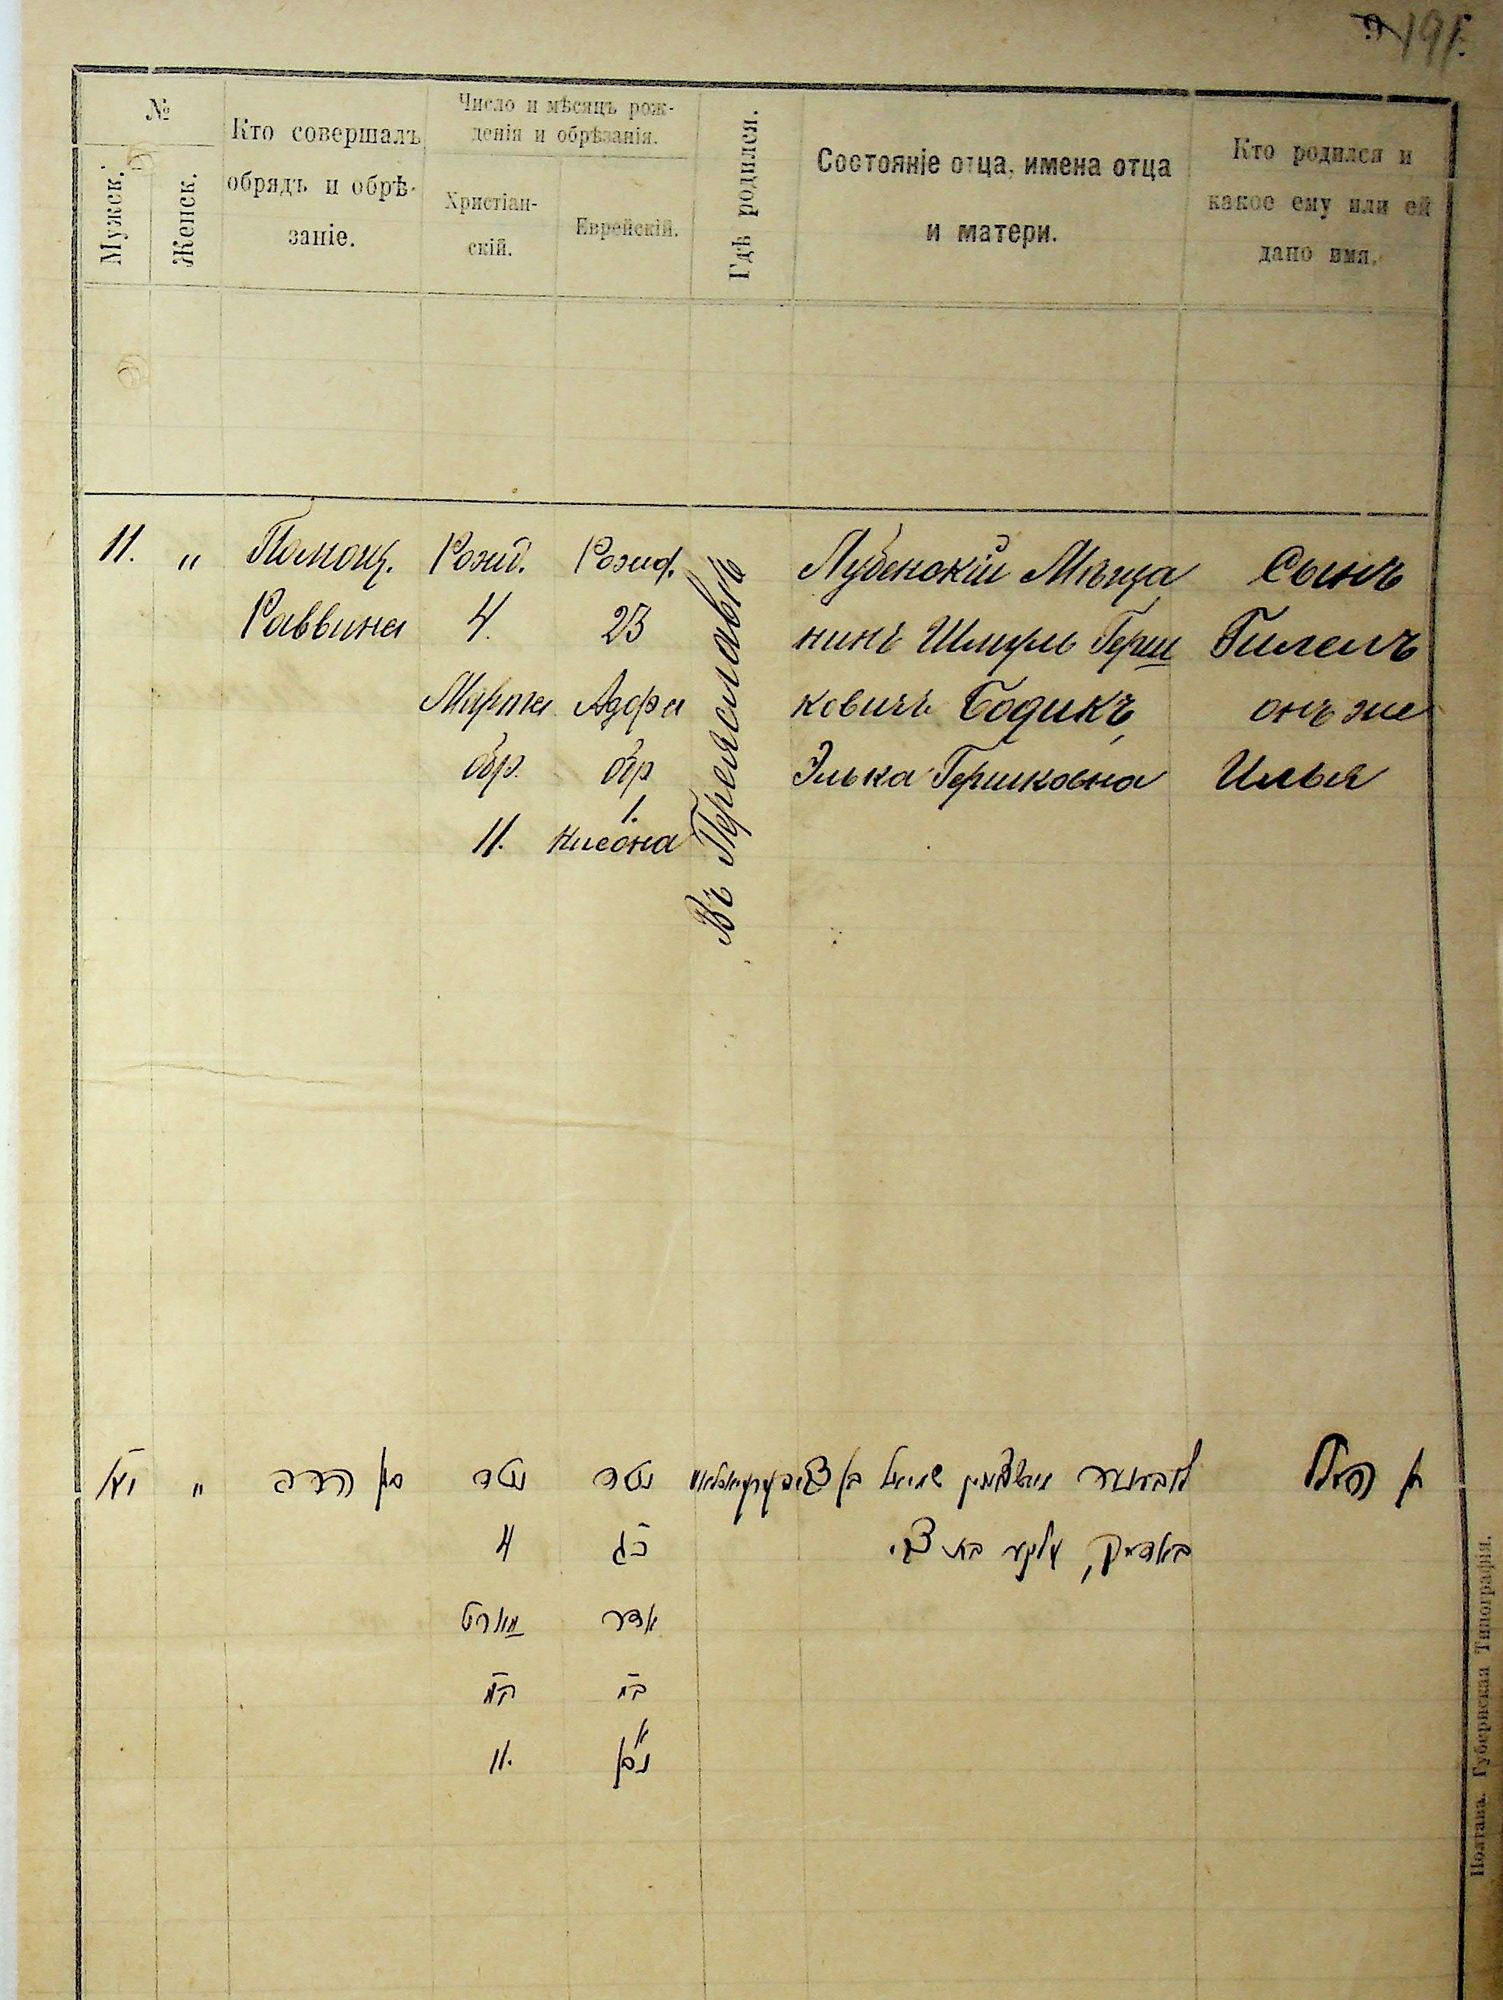 191.
№
Мужск.
Женск.
Кто совершалъ
обрядъ и обрѣ-
заніе.
Число и мѣсяцъ рож-
денія и обрѣзанія.
Христіан-
скій.
Еврейскій.
Гдѣ родился.
Состояніе отца, имена отца
и матери.
Кто родился и
какое ему или ей
дано имя.
11.
"
Помощ.
Раввина
Рожд.
4.
Марта
обр.
11.
Рожд.
23
Адора
обр
1.
Нисона
Въ Переяславѣ
Лубенскій Мѣща
нинъ Шмуль Герш
ковичъ Бодикъ,
Элька Гершковна
Сынъ
Гилель
онъ же
Илья
יא
"
סגן הרב
נולד
4
מארט
המ
11.
נולד
כג
אדר
ניסן
שמואל בן צבי
באדיק, עלקע בת צבי
בן הלל
Полтава. Губернская Типографія.